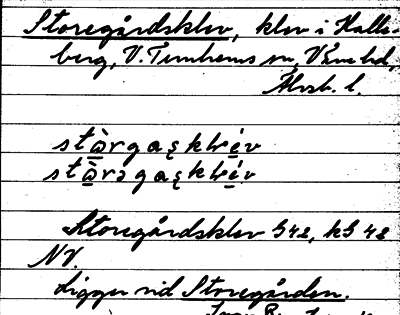 Storegårdsklev, klev i Halle-
berg, V. Tunhems sn, Väne hd,
Älvsb. l.
stàrgaʂklév
stàrəgaʂklév
Storegårdsklev G 42, kG 42
NV.
Ligger vid Storegården.